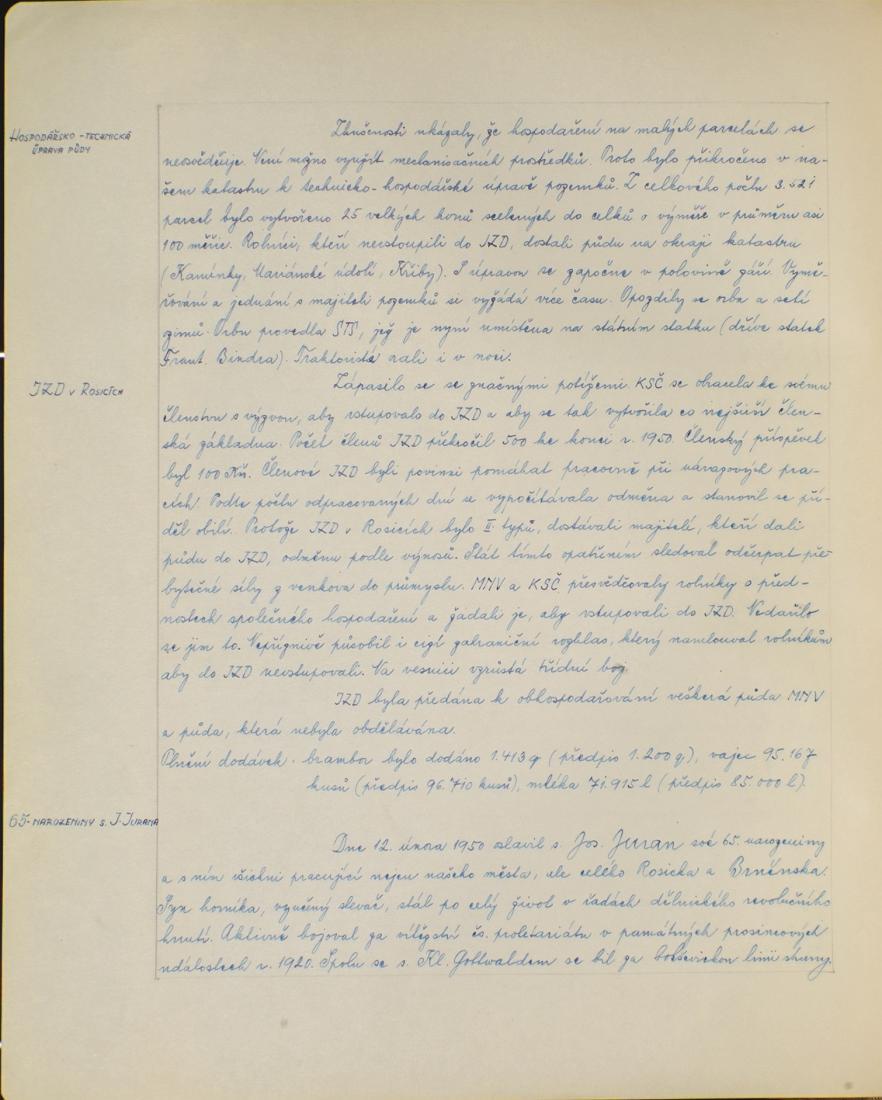 HOSPODÁŘSKO-TECHNICKÁ
ÚPRAVA PŮDY
Zkušenosti ukázaly, že hospodaření na malých parcelách se
neosvědčuje. Není možno využít mechanisačních prostředků. Proto bylo přikročeno v na-
šem katastru k technicko-hospodářské úpravě pozemků. Z celkového počtu 3.521
parcel bylo vytvořeno 25 velkých honů scelených do celků o výměře v průměru asi
100 měřic. Rolníci, kteří nevstoupili do JZD, dostali půdu na okraji katastru
(Kamínky, Mariánské údolí, Křiby). S úpravou se započne v polovině září. Vymě-
řování a jednání s majiteli pozemků si vyžádá více času. Opozdily se orba a setí
ozimů. Orbu provedla STS, jež je nyní umístěna na státním statku (dříve statek
Frant. Bindra). Traktoristé orali i v noci.
JZD v ROSICÍCH
Zápasilo se se značnými potížemi. KSČ se obracela ke svému
členstvu s výzvou, aby vstupovalo do JZD a aby se tak vytvořila co nejširší člen-
ská základna. Počet členů JZD překročil 500 ke konci r. 1950. Členský příspěvek
byl 100 Kčs. Členové JZD byli povinni pomáhat pracovně při návazových pra-
cích. Podle počtu odpracovaných dnů se vypočítávala odměna a stanovil se pří-
děl obilí. Protože JZD v Rosicích bylo II. typu, dostávali majitelé, kteří dali
půdu do JZD, odměnu podle výnosů. Stát tímto opatřením sledoval odčerpat pře-
bytečné síly z venkova do průmyslu. MNV a KSČ přesvědčovaly rolníky o před-
nostech společného hospodaření a žádali je, aby vstupovali do JZD. Nedařilo
se jim to. Nepříznivě působil i cizí zahraniční rozhlas, který namlouval rolníkům
aby do JZD nevstupovali. Na vesnici vzrůstá třídní boj.
JZD byla předána k obhospodařování veškerá půda MNV
a půda, která nebyla obdělávána.
Plnění dodávek: brambor bylo dodáno 1.413 q (předpis 1.200 q), vajec 95.167
kusů (předpis 96.710 kusů), mléka 71.915 l (předpis 85.000 l).
65. NAROZENINY S. J. JURANA
Dne 12. února 1950 slavil s. Jos. Juran své 65. narozeniny
a s ním všichni pracující nejen našeho města, ale celého Rosicka a Brněnska.
Syn horníka, vyučený slevač, stál po celý život v řadách dělnického revolučního
hnutí. Aktivně bojoval za vítězství čs. proletariátu v památných prosincových
událostech r. 1920. Spolu se s. Kl. Gottwaldem se bil za bolševickou linii strany.